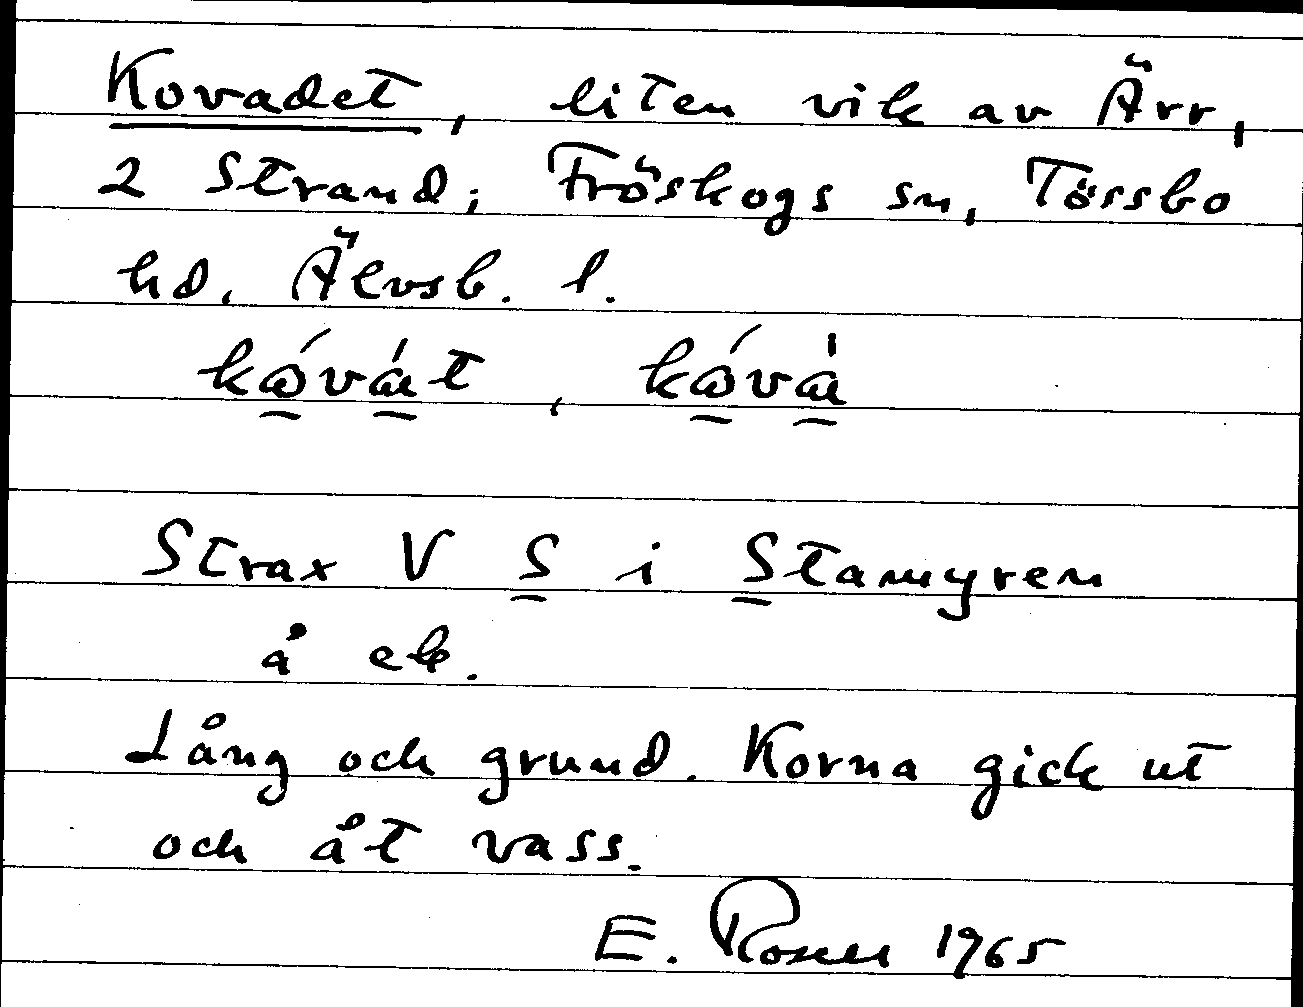 Kovadet, liten vik av Ärr,
2 Strand; Fröskogs sn, Tössbo
hd. Älvsb. l.
kóvát, kóvá
Strax V S i Stamyren
å ek.
Lång och grund. Korna gick ut
och åt vass.
E. Rosell 1965